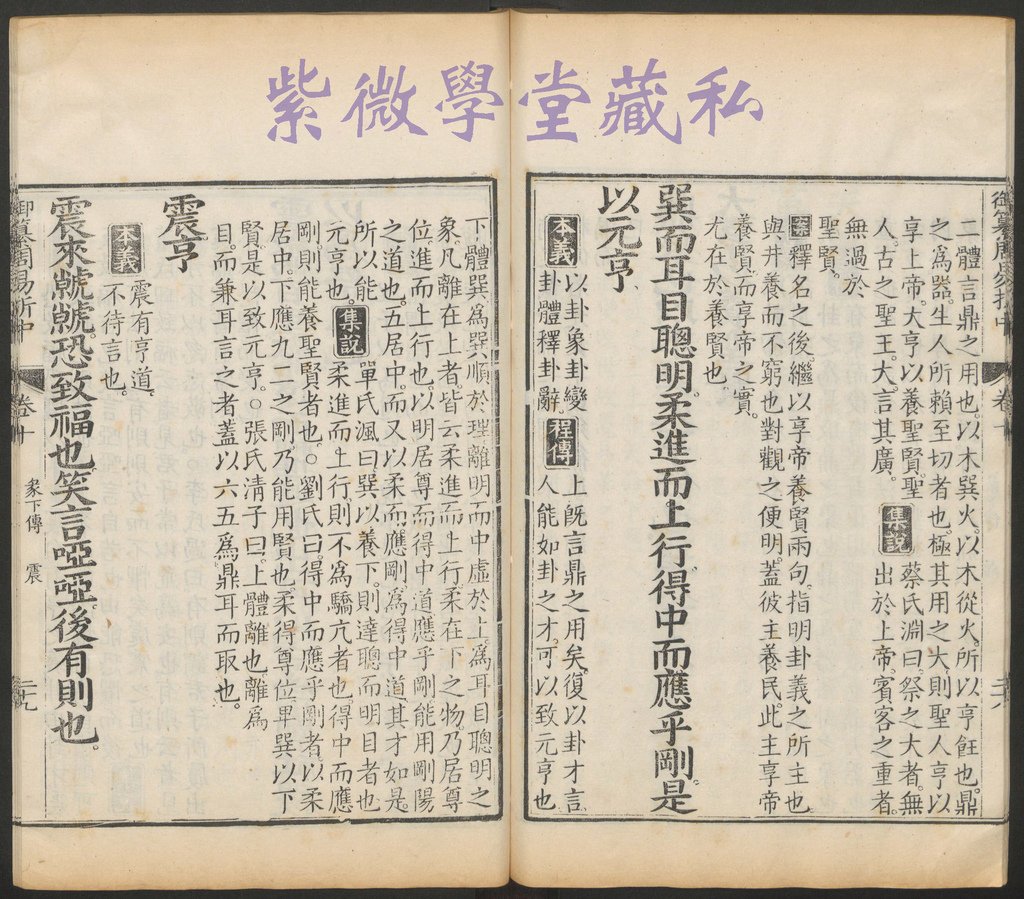 紫微學堂藏私
二體言鼎之用也。以木巽火。以木從火。所以亨飪也。鼎
之爲器。生人所賴至切者也。極其用之大。則聖人亨以
享上帝。大亨以養聖賢。聖
人。古之聖王。大。言其廣。
集說
蔡氏淵曰。祭之大者。無
出於上帝。賓客之重者。
無過於
聖賢。
案釋名之後。繼以享帝養賢兩句。指明卦義之所主也
與井養而不窮也對觀之便明。蓋彼主養民。此主享帝
養賢。而享帝之實。
尤在於養賢也。
巽而耳目聰明。柔進而上行。得中而應乎剛。是
以元亨。
本義
以卦象卦變
卦體釋卦辭。
程傳
上既言鼎之用矣。復以卦才言
人能如卦之才。可以致元亨也
下體巽。爲巽順於理。離明而中虛於上。爲耳目聰明之
象。凡離在上者。皆云柔進而上行。柔在下之物。乃居尊
位。進而上行也。以明居尊。而得中道。應乎剛。能用剛陽
之道也。五居中。而又以柔而應剛。爲得中道。其才如是。
所以能
元亨也。
集說
單氏渢曰。巽以養下。則達聰而明目者也
柔進而上行。則不爲驕亢者也。得中而應
剛。則能養聖賢者也。○劉氏曰。得中而應乎剛者。以柔
居中。下應九二之剛。乃能用賢也。柔得尊位。卑巽以下
賢。是以致元亨。○張氏清子曰。上體離也。離爲
目。而兼耳言之者。蓋以六五爲鼎耳而取也。
震亨
本義
震有亨道。
不待言也。
震來虩虩。恐致福也。笑言啞啞。後有則也。
御纂周易折中
卷十
彖下傳
震
二十九
御纂周易折中
卷十